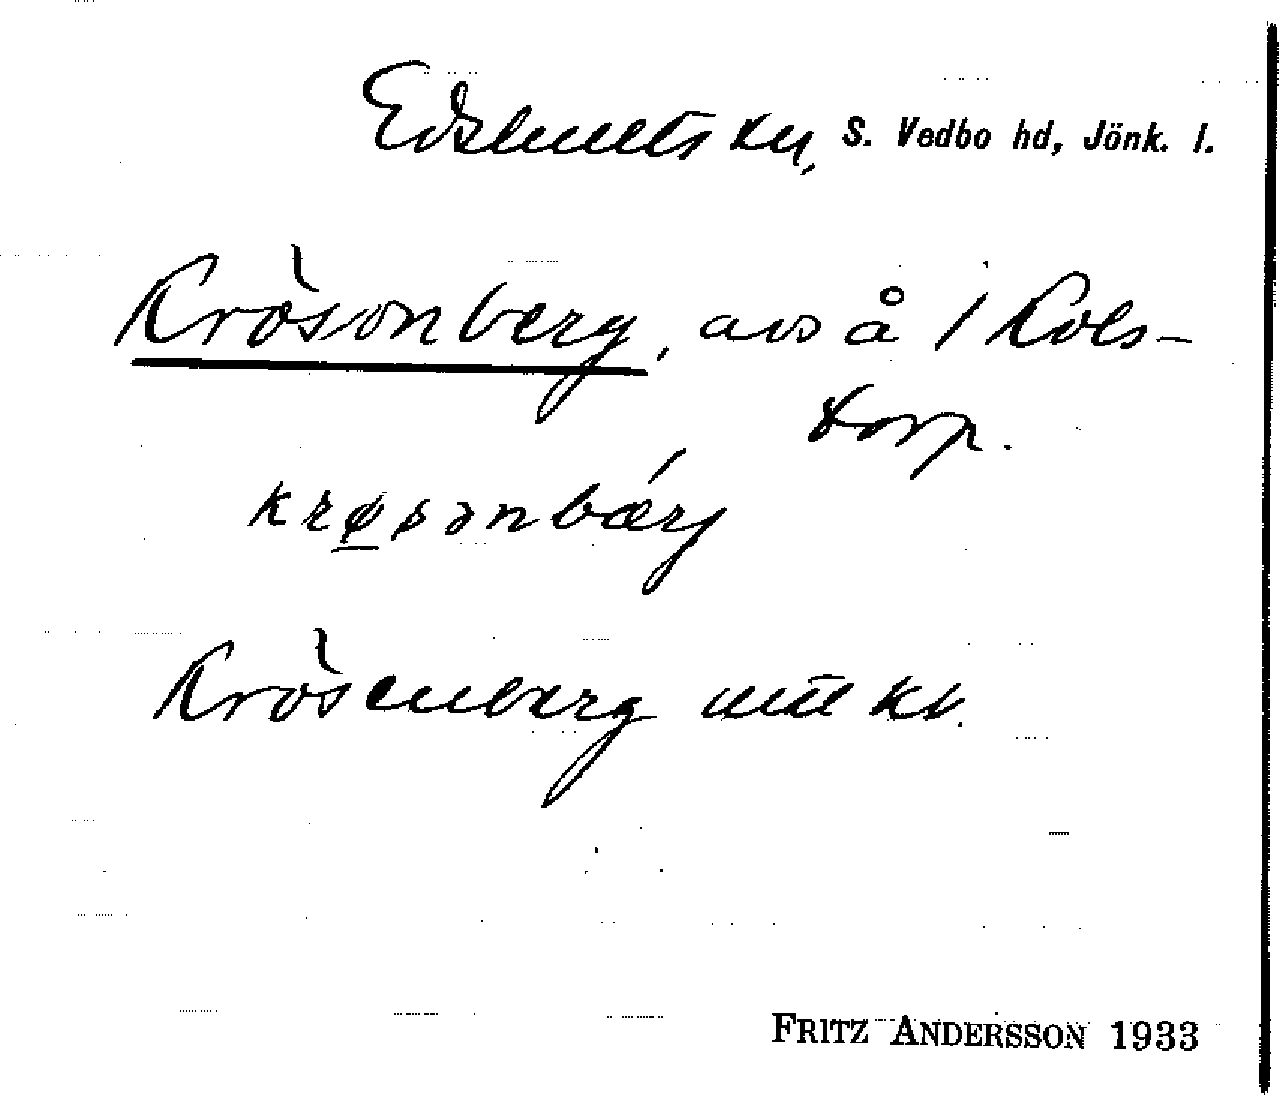 Edshults sn, S. Vedbo hd, Jönk. l.
Krösonberg, avs å / Kols-
torp.
krøsənbærj
Krösenberg
FRITZ ANDERSSON 1933